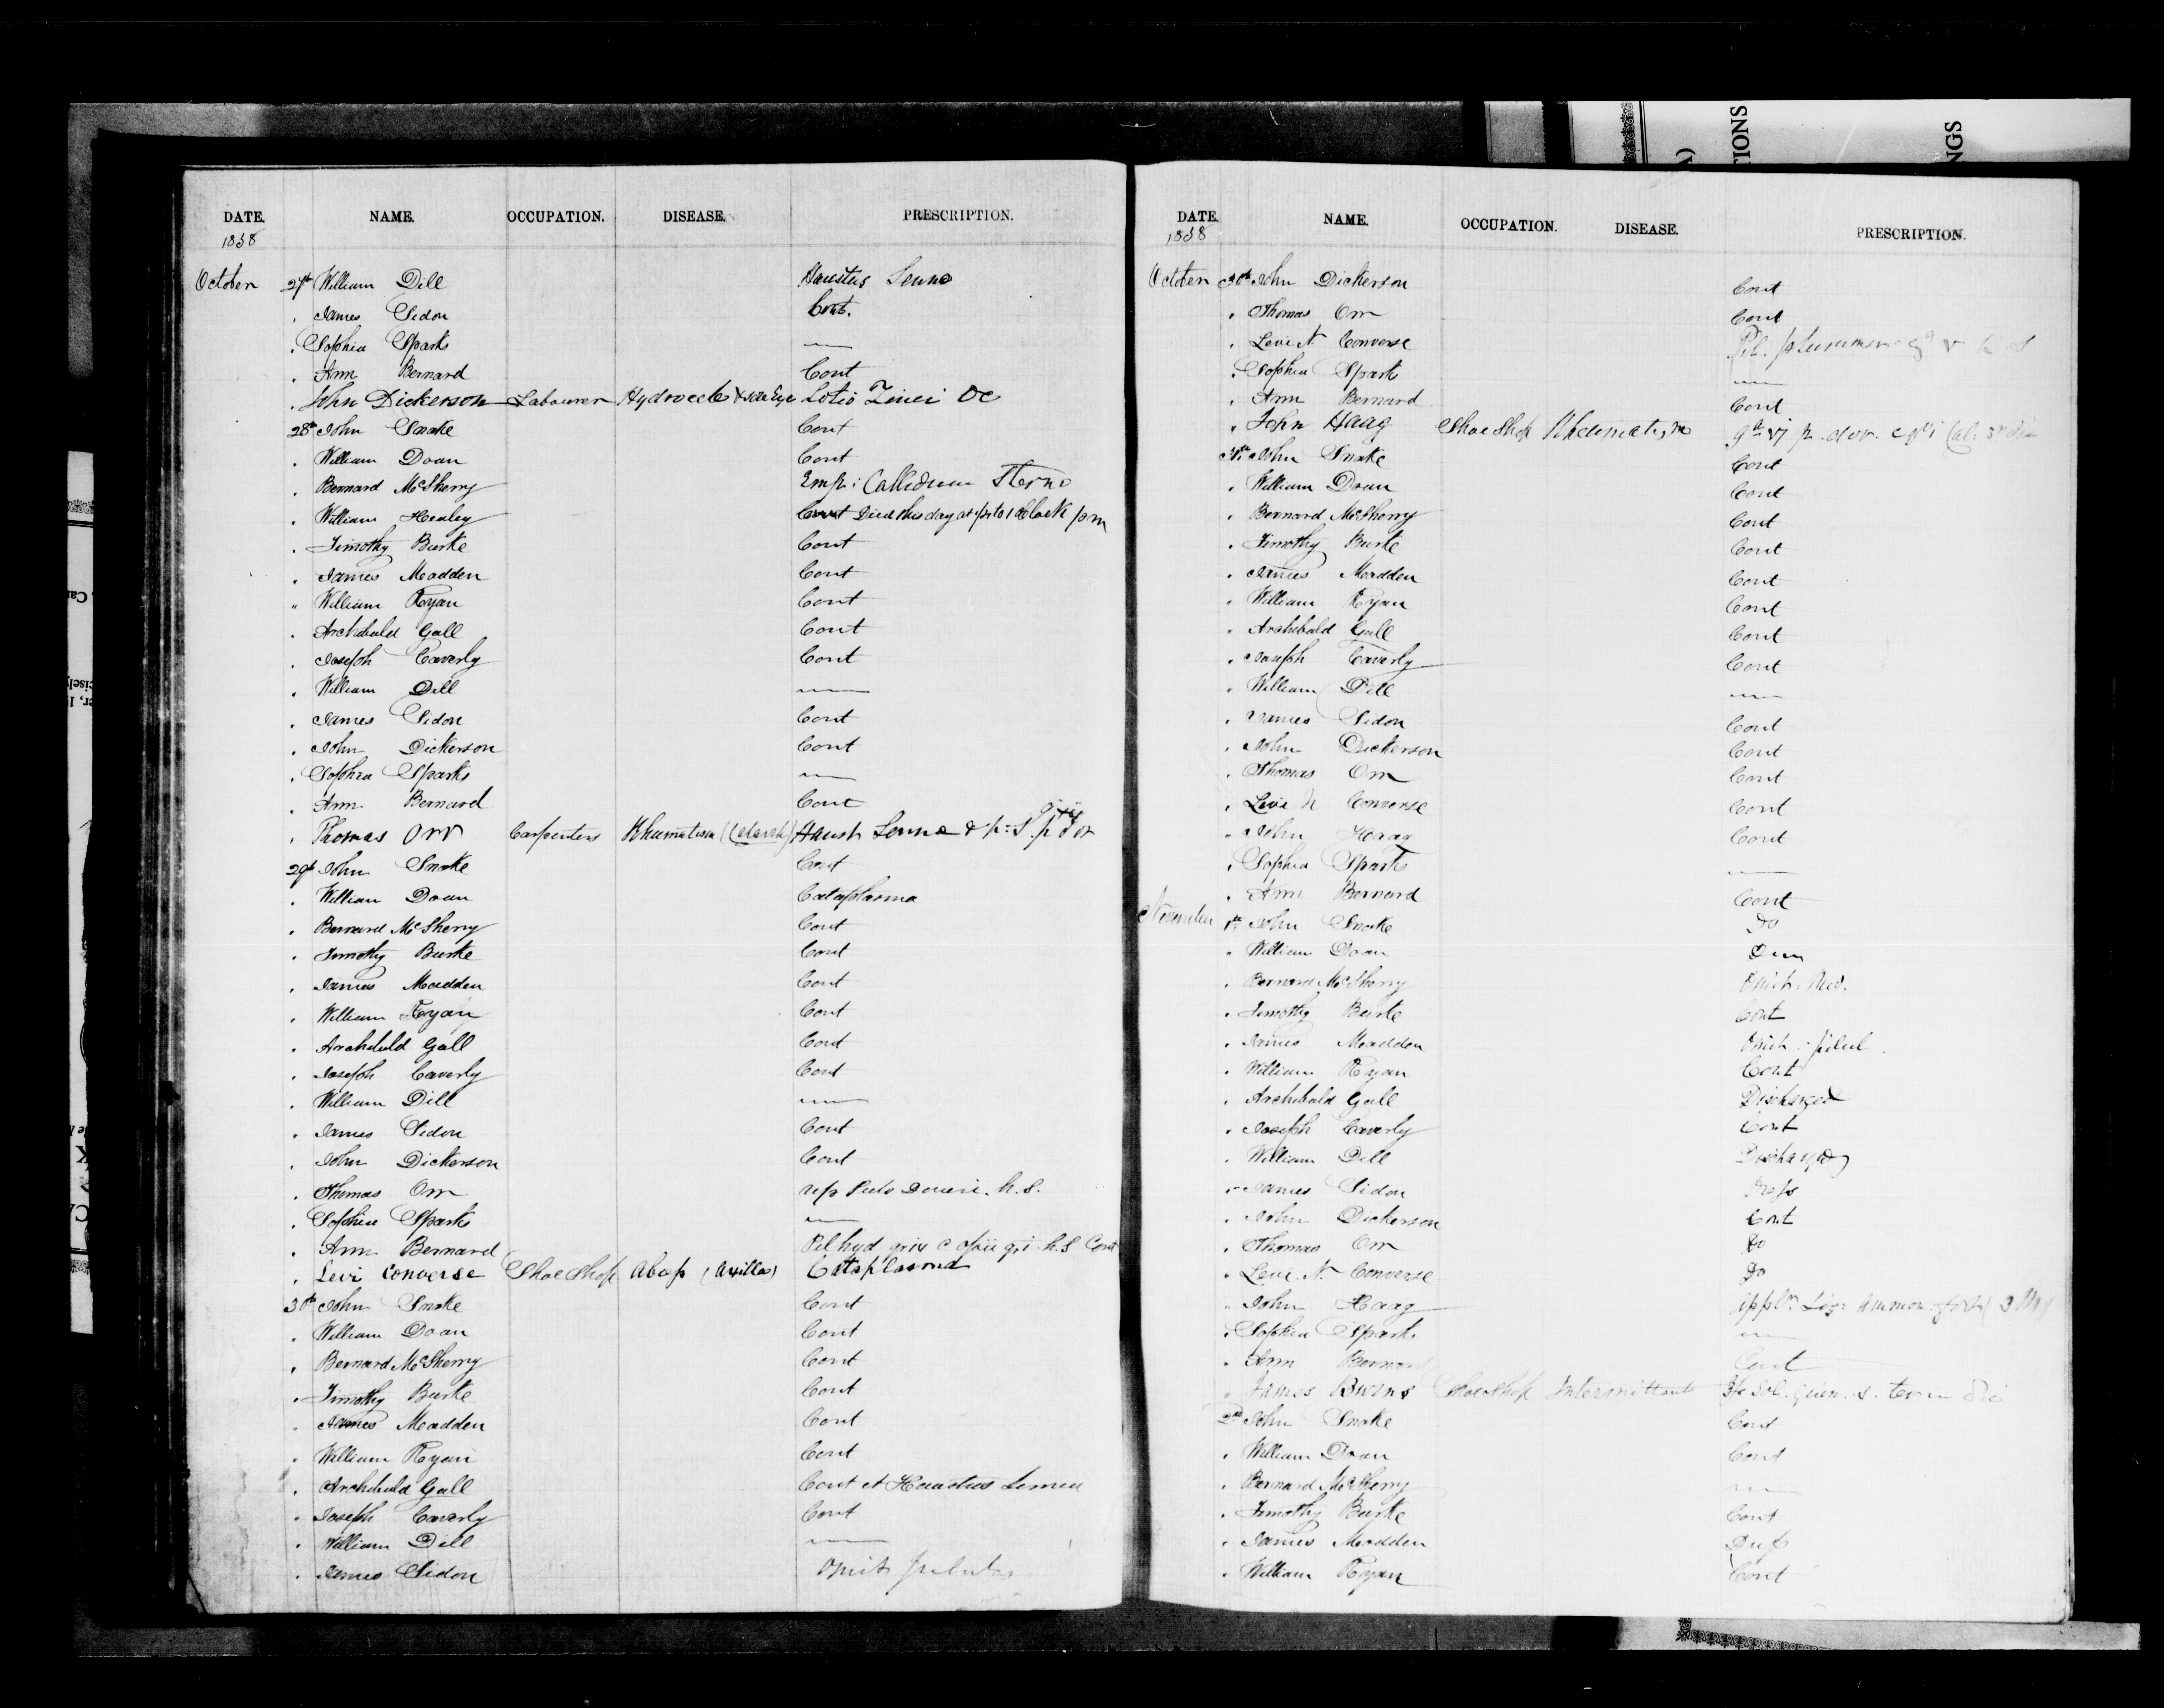 IONS
NGS
DATE. NAME. OCCUPATION. DISEASE. PRESCRIPTION.
1858
October 27th William Dill Haustus Senna
" James Sidon Cont.
" Sophia Sparks —
" Ann Bernard Cont
" John Dickerson Labourer Hydrocele & sore Eye Lotio Zinci
28th John Snake Cont
" William Doan Cont
" Bernard McSherry Emp: Callidum Sterno
" William Healey Cont Died this day at 1 O'Clock pm
" Timothy Burke Cont
" James Madden Cont
" William Ryan Cont
" Archibald Gall Cont
" Joseph Caverly Cont
" William Dill —
" James Sidon Cont
" John Dickerson Cont
" Sophia Sparks —
" Ann Bernard Cont
" Thomas Orr Carpenters Rheumatism Haust Senna &
29th John Snake Cont
" William Doan Cataplasma
" Bernard McSherry Cont
" Timothy Burke Cont
" James Madden Cont
" William Ryan Cont
" Archibald Gall Cont
" Joseph Caverly Cont
" William Dill —
" James Sidon Cont
" John Dickerson Cont
" Thomas Orr h.s.
" Sophia Sparks —
" Ann Bernard Pil hyd c opii gr i h.s Cont
" Levi Converse Shoe Shop (Axilla) Cataplasma
30th John Snake Cont
" William Doan Cont
" Bernard McSherry Cont
" Timothy Burke Cont
" James Madden Cont
" William Ryan Cont
" Archibald Gall Cont et Haustus Senna
" Joseph Caverly Cont
" William Dill —
" James Sidon Omit
DATE. NAME. OCCUPATION. DISEASE. PRESCRIPTION.
1858
October 30th John Dickerson Cont
" Thomas Orr Cont
" Levi N Converse Pil.
" Sophia Sparks —
" Ann Bernard Cont
" John Haag Shoe Shop Rheumatism
31st John Snake Cont
" William Doan Cont
" Bernard McSherry Cont
" Timothy Burke Cont
" James Madden Cont
" William Ryan Cont
" Archibald Gall Cont
" Joseph Caverly Cont
" William Dill —
" James Sidon Cont
" John Dickerson Cont
" Thomas Orr Cont
" Levi N Converse Cont
" John Haag Cont
" Sophia Sparks —
" Ann Bernard Cont
November 1st John Snake Do
" William Doan
" Bernard McSherry Omit Med.
" Timothy Burke Cont
" James Madden Omit pilul
" William Ryan Cont
" Archibald Gall Discharged
" Joseph Caverly Cont
" William Dill Discharged
" James Sidon
" John Dickerson Cont
" Thomas Orr Do
" Levi N. Converse Do
" John Haag Liq: Ammon:
" Sophia Sparks —
" Ann Bernard Cont
" James Burns Shoe Shop Intermittent Sol. Quin. s. ter in die
2nd John Snake Cont
" William Doan Cont
" Bernard McSherry —
" Timothy Burke Cont
" James Madden
" William Ryan Cont